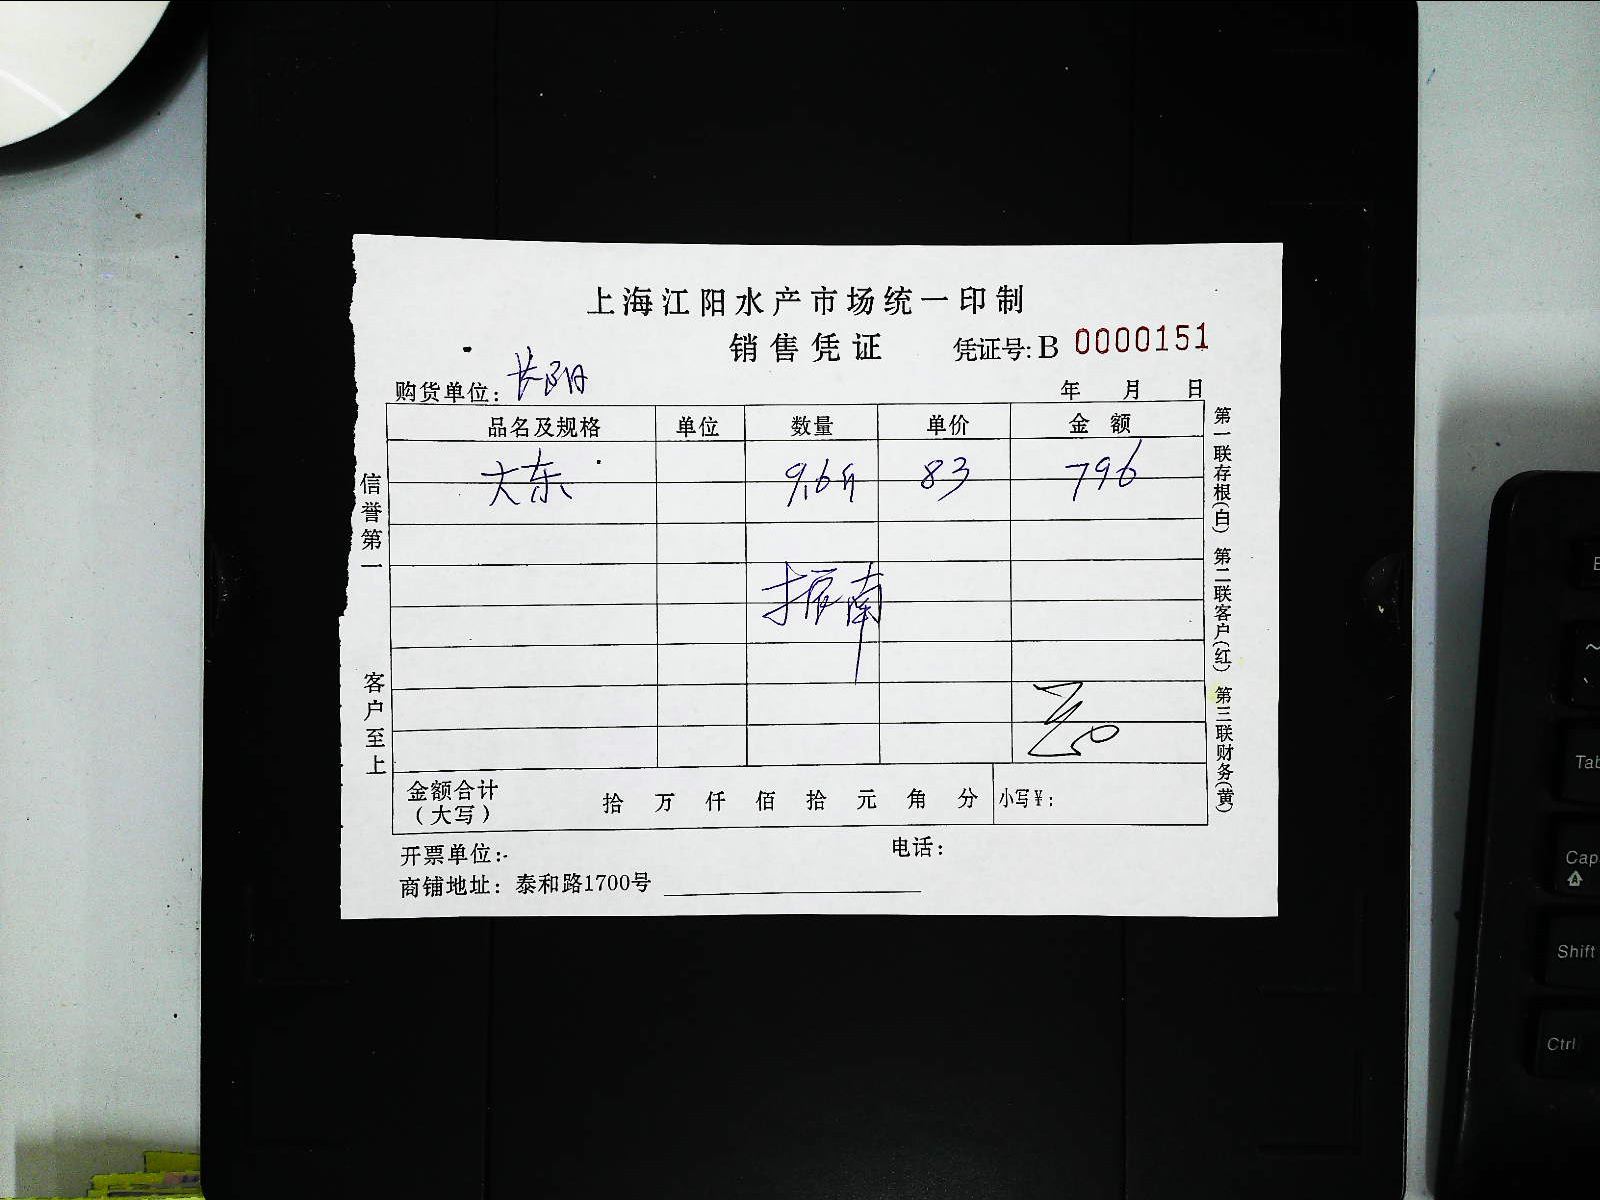 上海江阳水产市场统一印制
销售凭证 凭证号: B 0000151
购货单位: 长阳 年 月 日
品名及规格 单位 数量 单价 金额
大东 9.6斤 83 796
振南
金额合计 (大写) 拾 万 仟 佰 拾 元 角 分 小写¥:
开票单位: 电话:
商铺地址: 泰和路1700号
信誉第一 客户至上
第一联存根(白) 第二联客户(红) 第三联财务(黄)
Tab
Cap
Shift
Ctrl